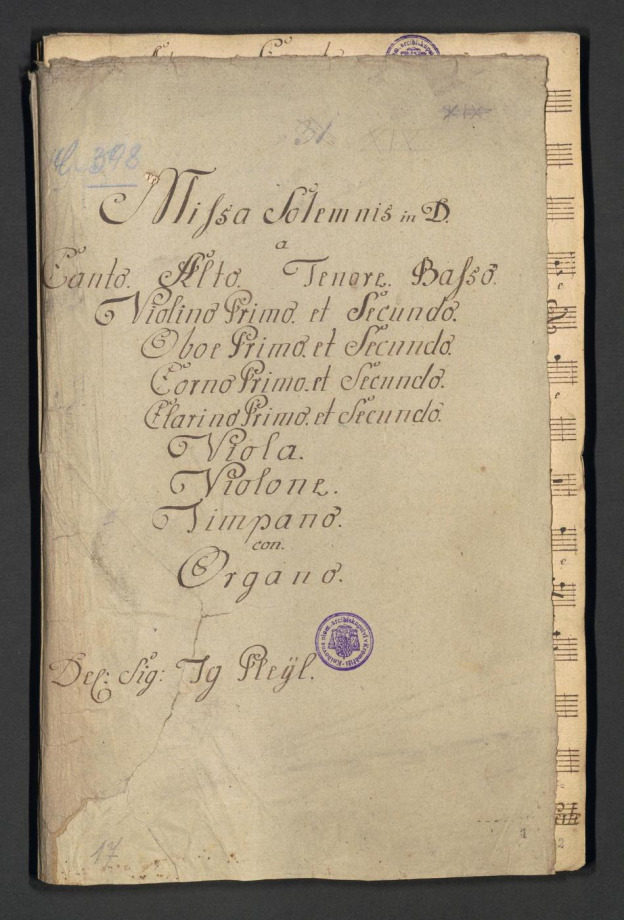 31
XIX
XIX
398
Missa Solemnis in D.
a
Canto. Alto. Tenore. Basso.
Violino Primo. et Secundo.
Oboe Primo. et Secundo.
Corno Primo. et Secundo.
Clarino Primo. et Secundo.
Viola.
Violone.
Timpano.
con.
Organo.
Del: Sig: Ig Pleÿl.
17
1
2